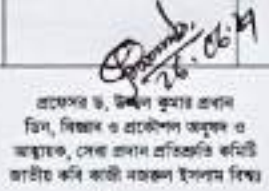 26.06.24
প্রফেসর ড. উজ্জ্বল কুমার প্রধান
ডিন, বিজ্ঞান ও প্রকৌশল অনুষদ ও
আহ্বায়ক, সেবা প্রদান প্রতিশ্রুতি কমিটি
জাতীয় কবি কাজী নজরুল ইসলাম বিশ্বঃ